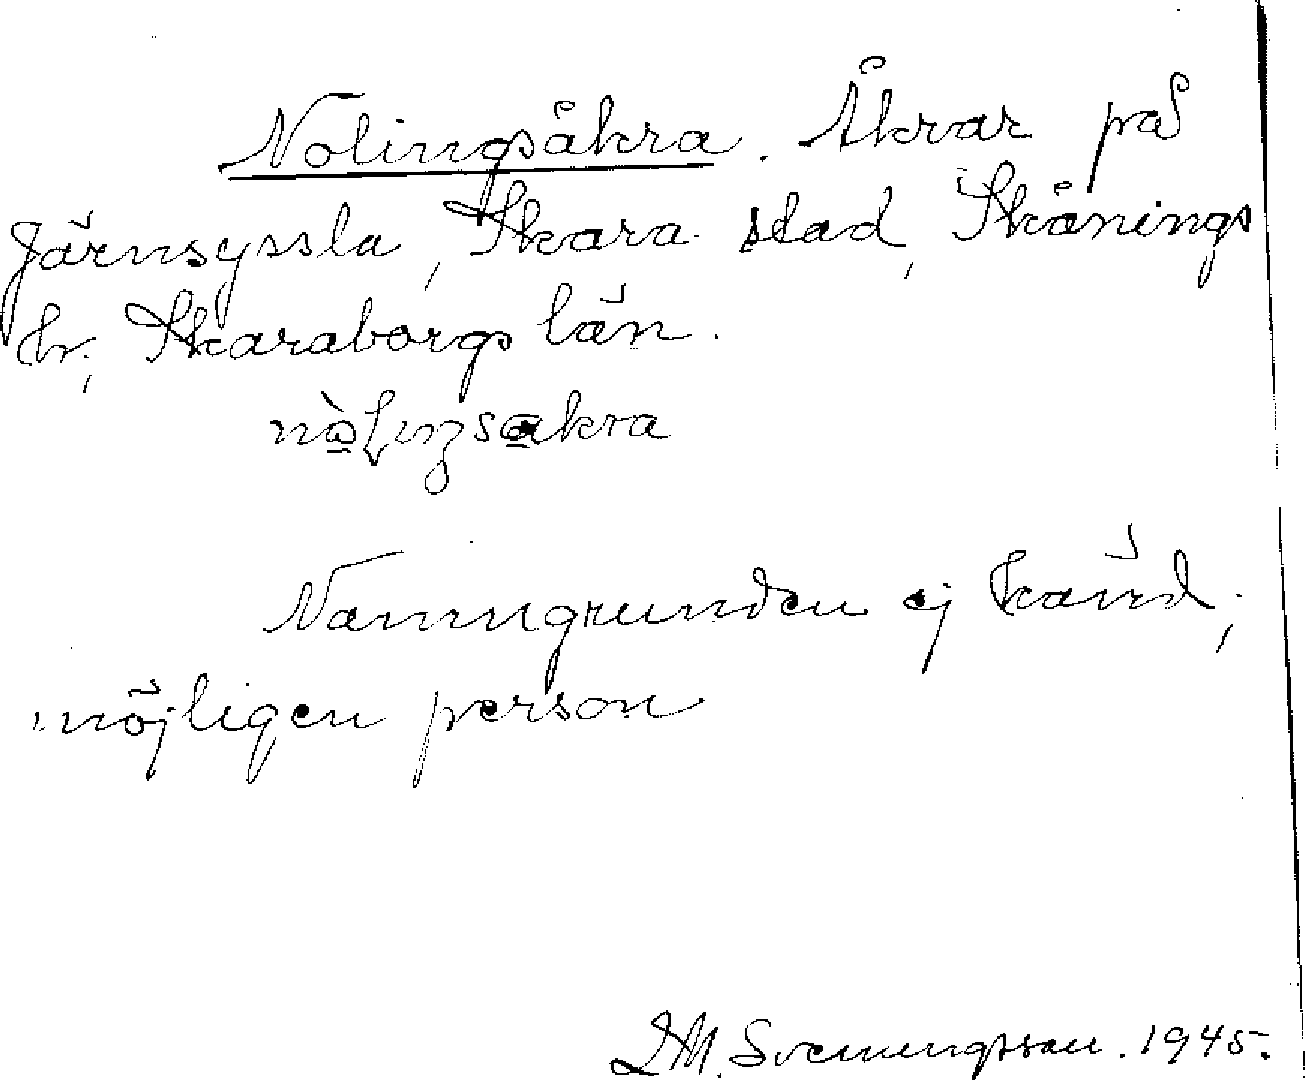 Nolingsåkra. Åkrar på
Järnsyssla, Skara stad, Skånings
hr, Skaraborgs län.
Namngrunden ej känd;
möjligen person
L.M. Svenungsson. 1945.